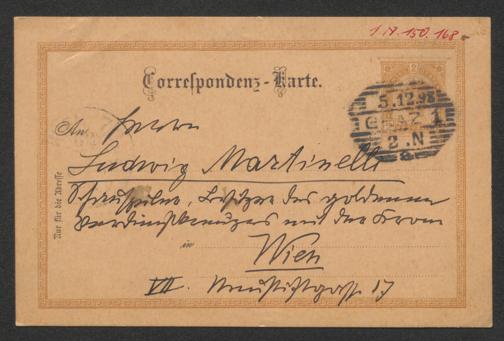 I.N. 150.168
Correspondenz-Karte.
5.12.98
GRAZ 1
2.N
An Herrn
Ludwig Martinelli
Schauspieler, Besitzer des goldenen
Verdienstkreuzes mit der Krone
in Wien
VII. Neustiftgasse 17
Nur für die Adresse